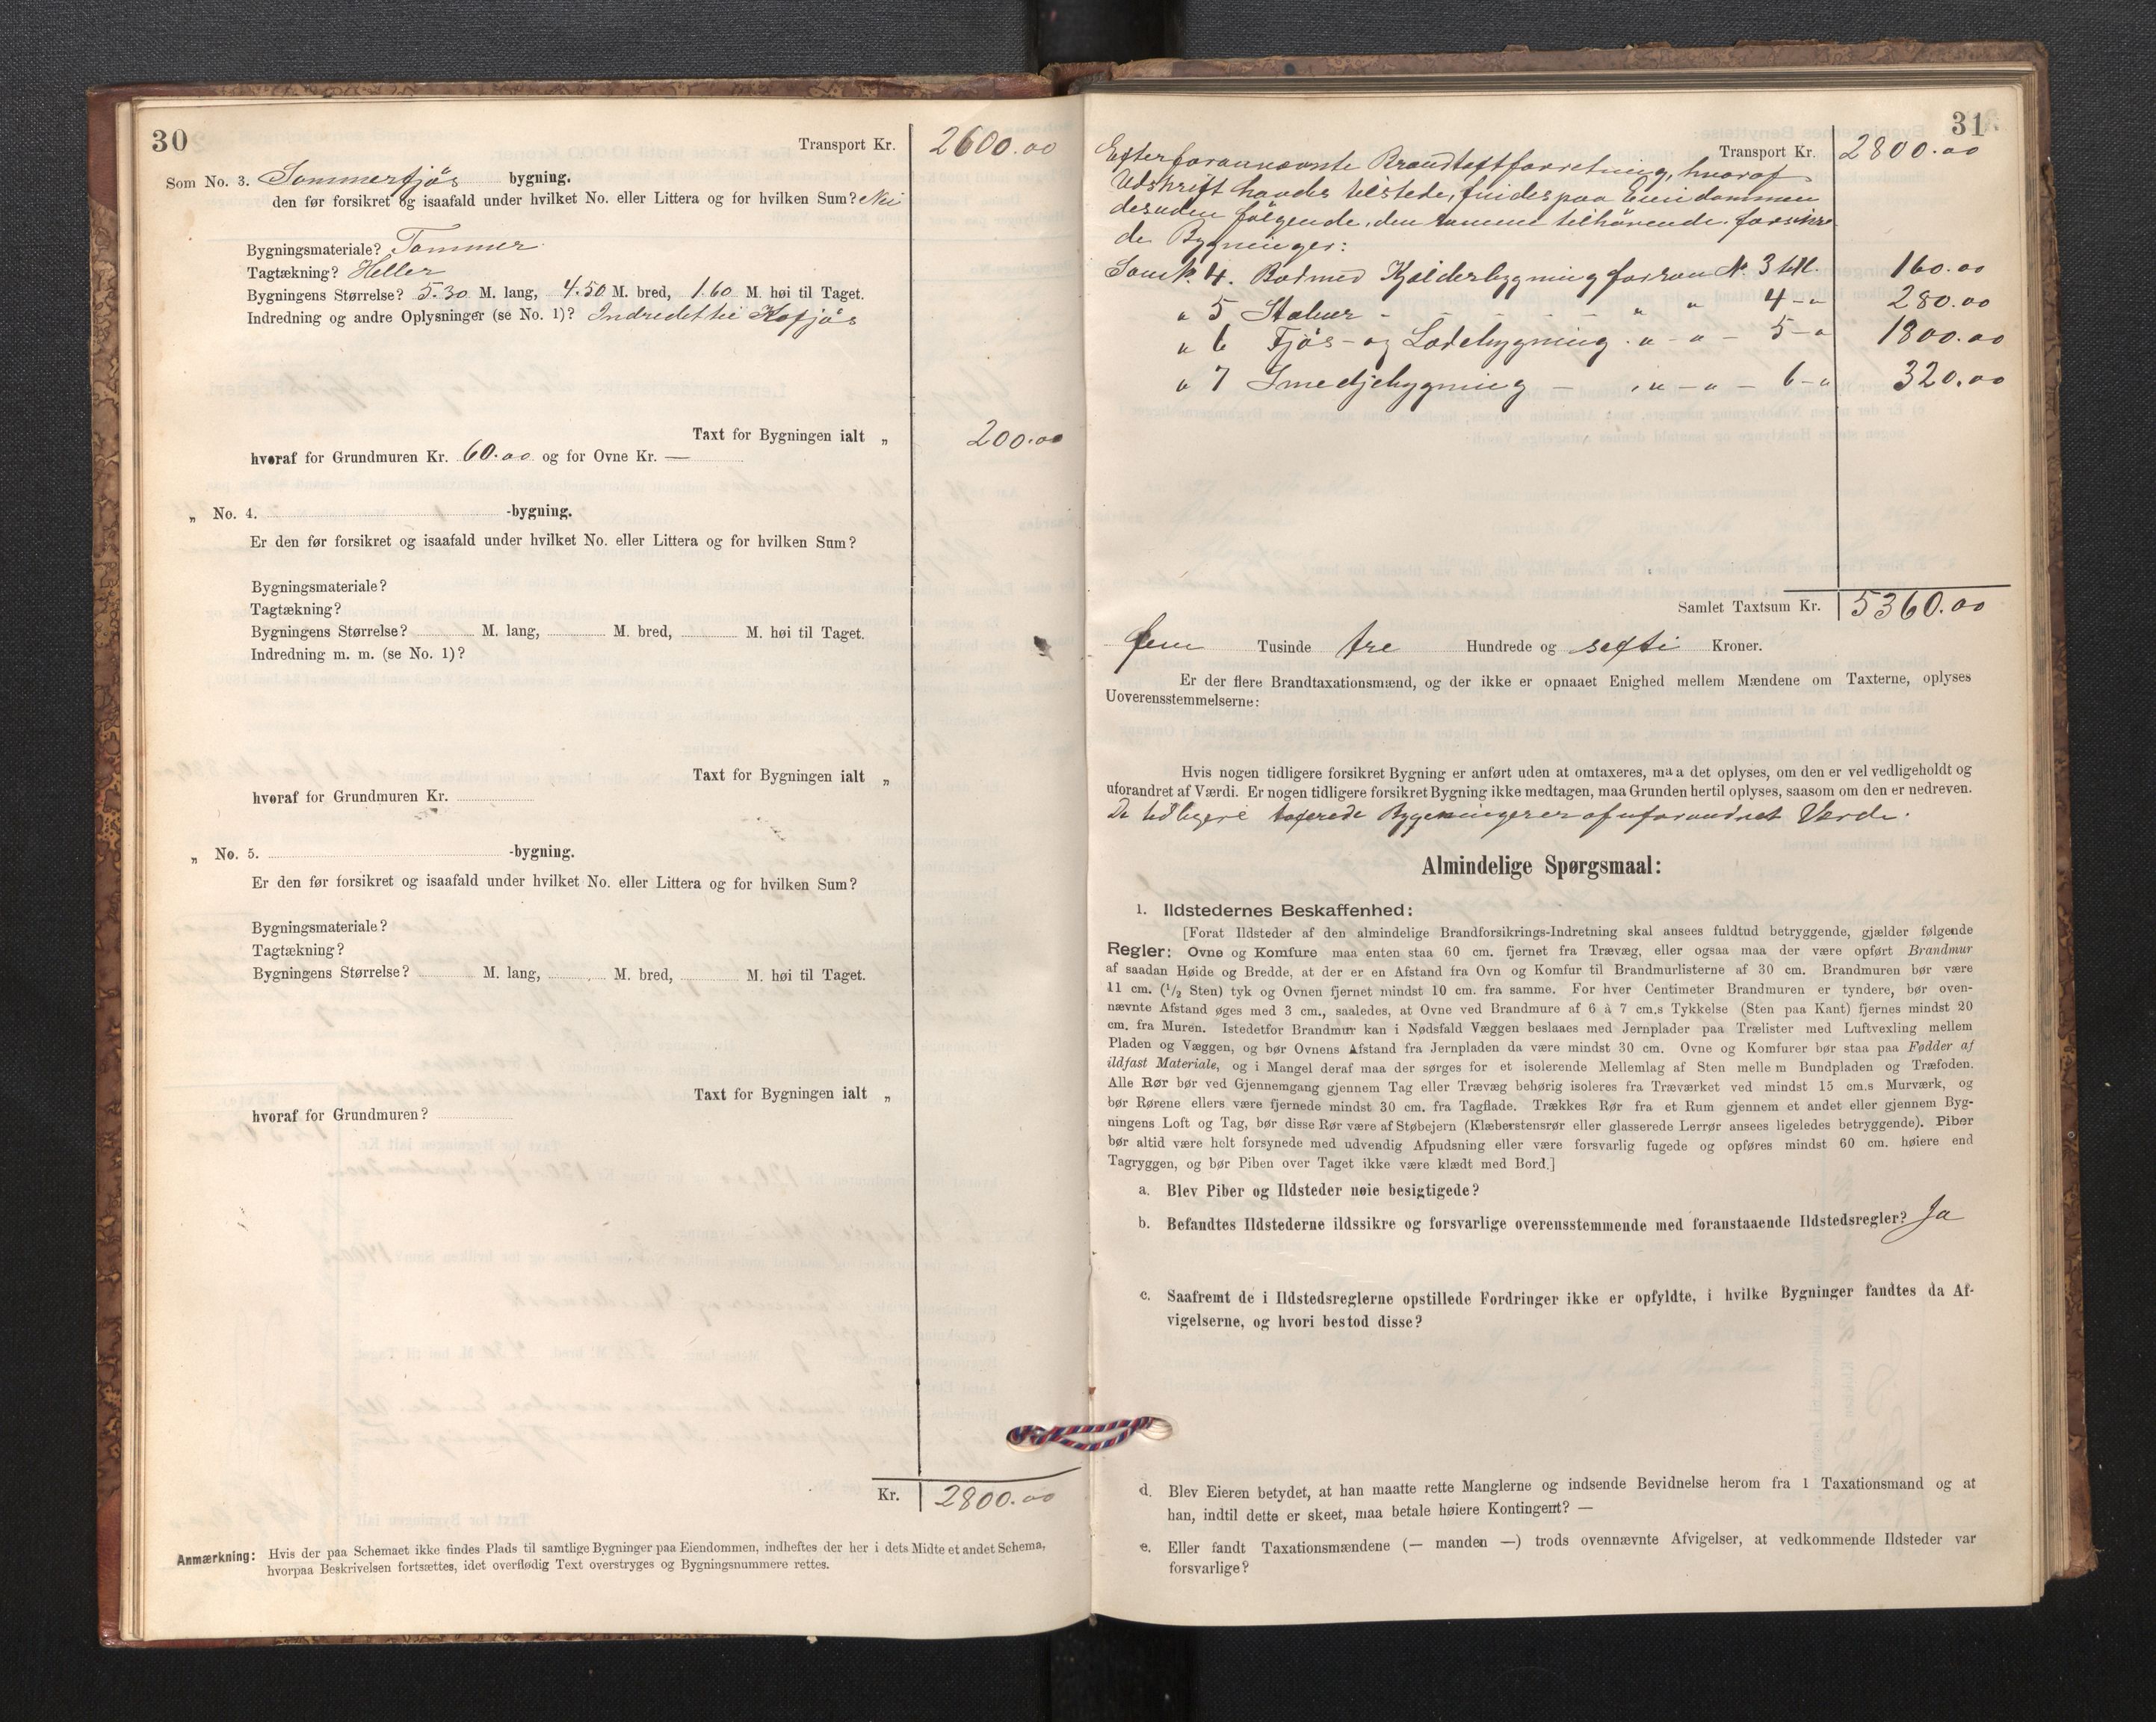 30
Transport Kr. 2600.00
Som No. 3. Sommerfjøs bygning.
den før forsikret og isaafald under hvilket No. eller Littera og for hvilken Sum? Nei
Bygningsmateriale? Tømmer
Tagtækning? Heller
Bygningens Størrelse? 5.30 M. lang, 4.50 M. bred, 1.60 M. høi til Taget.
Indredning og andre Oplysninger (se No. 1)? Indredet til Kofjøs
Taxt for Bygningen ialt „ 200.00
hvoraf for Grundmuren Kr. 60.00 og for Ovne Kr. —
„ No. 4. -bygning.
Er den før forsikret og isaafald under hvilket No. eller Littera og for hvilken Sum?
Bygningsmateriale?
Tagtækning?
Bygningens Størrelse? M. lang, M. bred, M. høi til Taget.
Indredning m. m. (se No. 1)?
Taxt for Bygningen ialt „
hvoraf for Grundmuren Kr.
„ No. 5. -bygning.
Er den før forsikret og isaafald under hvilket No. eller Littera og for hvilken Sum?
Bygningsmateriale?
Tagtækning?
Bygningens Størrelse? M. lang, M. bred, M. høi til Taget.
Taxt for Bygningen ialt „
hvoraf for Grundmuren?
Kr. 2800.00
Anmærkning: Hvis der paa Schemaet ikke findes Plads til samtlige Bygninger paa Eiendommen, indheftes der her i dets Midte et andet Schema,
hvorpaa Beskrivelsen fortsættes, idet overflødig Text overstryges og Bygningsnummere rettes.
31
Transport Kr. 2800.00
Efter forannævnte Brandtaxtforretning, hvoraf
Udskrift havdes tilstede, findes paa Eiendommen
desuden følgende, den samme tilhørende forsikre
de Bygninger:
Som No. 4. Bod med Kjelderbygning forhen No. 3 160.00
" 5 Stabur - - - - - " " 4 - " 280.00
" 6 Fjøs- og Ladebygning . " - " - 5 - " 1800.00
" 7 Smedjebygning - . " - " - 6 - " 320.00
Samlet Taxtsum Kr. 5360.00
fem Tusinde tre Hundrede og sexti Kroner.
Er der flere Brandtaxationsmænd, og der ikke er opnaaet Enighed mellem Mændene om Taxterne, oplyses
Uoverensstemmelserne:
Hvis nogen tidligere forsikret Bygning er anført uden at omtaxeres, maa det oplyses, om den er vel vedligeholdt og
uforandret af Værdi. Er nogen tidligere forsikret Bygning ikke medtagen, maa Grunden hertil oplyses, saasom om den er nedreven.
De tidligere taxerede Bygninger er af uforandret Værdi.
Almindelige Spørgsmaal:
1. Ildstedernes Beskaffenhed:
[Forat Ildsteder af den almindelige Brandforsikrings-Indretning skal ansees fuldtud betryggende, gjælder følgende
Regler: Ovne og Komfure maa enten staa 60 cm. fjernet fra Trævæg, eller ogsaa maa der være opført Brandmur
af saadan Høide og Bredde, at der er en Afstand fra Ovn og Komfur til Brandmurlisterne af 30 cm. Brandmuren bør være
11 cm. (1/2 Sten) tyk og Ovnen fjernet mindst 10 cm. fra samme. For hver Centimeter Brandmuren er tyndere, bør oven-
nævnte Afstand øges med 3 cm., saaledes, at Ovne ved Brandmure af 6 à 7 cm.s Tykkelse (Sten paa Kant) fjernes mindst 20
cm. fra Muren. Istedetfor Brandmur kan i Nødsfald Væggen beslaaes med Jernplader paa Trælister med Luftvexling mellem
Pladen og Væggen, og bør Ovnens Afstand fra Jernpladen da være mindst 30 cm. Ovne og Komfurer bør staa paa Fødder af
ildfast Materiale, og i Mangel deraf maa der sørges for et isolerende Mellemlag af Sten mellem Bundpladen og Træfoden.
Alle Rør bør ved Gjennemgang gjennem Tag eller Trævæg behørig isoleres fra Træværket ved mindst 15 cm.s Murværk, og
bør Rørene ellers være fjernede mindst 30 cm. fra Tagflade. Trækkes Rør fra et Rum gjennem et andet eller gjennem Byg-
ningens Loft og Tag, bør disse Rør være af Støbejern (Klæberstensrør eller glasserede Lerrør ansees ligeledes betryggende). Piber
bør altid være helt forsynede med udvendig Afpudsning eller være forsvarlig fugede og opføres mindst 60 cm. høiere end
Tagryggen, og bør Piben over Taget ikke være klædt med Bord.]
a. Blev Piber og Ildsteder nøie besigtigede?
b. Befandtes Ildstederne ildssikre og forsvarlige overensstemmende med foranstaaende Ildstedsregler? Ja
c. Saafremt de i Ildstedsreglerne opstillede Fordringer ikke er opfyldte, i hvilke Bygninger fandtes da Af-
vigelserne, og hvori bestod disse?
d. Blev Eieren betydet, at han maatte rette Manglerne og indsende Bevidnelse herom fra 1 Taxationsmand og at
han, indtil dette er skeet, maa betale høiere Kontingent? —
e. Eller fandt Taxationsmændene (— manden —) trods ovennævnte Afvigelser, at vedkommende Ildsteder var
forsvarlige?